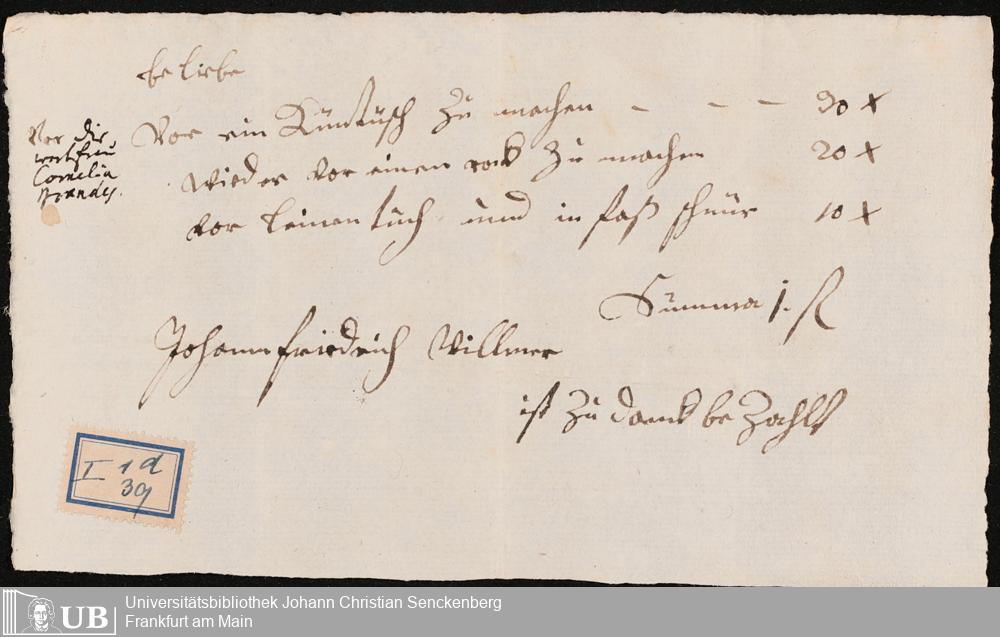 beliebe
Vor ein Kuntusch zu machen - - - 30 x
Vor die
wertfrau
Cornelia
Brandes.
wieder vor einen rock zu machen 20 x
vor leinen tuch und in faß schnür 10 x
Summa 1. fl
Johann friedrich Willmer
ist zu danck bezahlt
I 1d
39
UB
Universitätsbibliothek Johann Christian Senckenberg
Frankfurt am Main